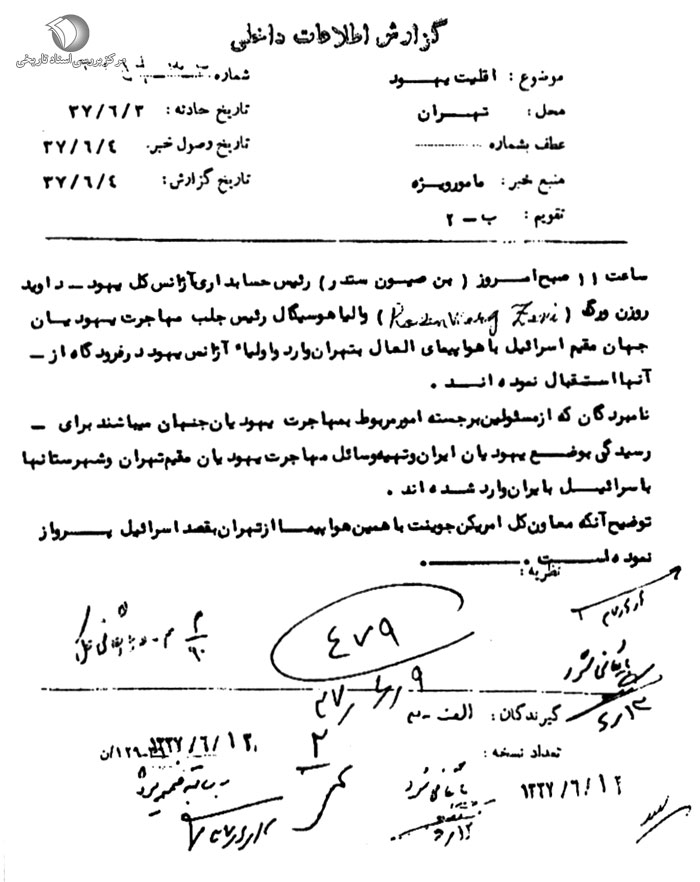 مرکز بررسی اسناد تاریخی
گزارش اطلاعات داخلی
موضوع : اقلیت یهود
شماره
محل : تهران
تاریخ حادثه : ۳۷/۶/۳
عطف بشماره
تاریخ وصول خبر : ۳۷/۶/٤
منبع خبر : مامورویژه
تاریخ گزارش : ۳۷/۶/٤
تقویم : ب – ۲
ساعت ۱۱ صبح امروز ( بن صیون ستدر ) رئیس حسابداری آژانس کل یهود – داوید
روزن ورگ ( Zevi ) والیاهو سیگال رئیس جلب مهاجرت یهودیان
جهان مقیم اسرائیل با هواپیمای العال بتهران وارد واولیاء آژانس یهود در فرودگاه از –
آنها استقبال نموده اند .
نامبردگان که از مسئولین برجسته امور مربوط بمهاجرت یهودیان جنهان میباشند برای –
رسیدگی بوضع یهودیان ایران وتهیه وسائل مهاجرت یهودیان مقیم تهران وشهرستانها
باسرائیل بایران وارد شده اند .
توضیح آنکه معاون کل امریکن جوینت با همین هواپیما از تهران بقصد اسرائیل پرواز
نموده است .
نظریه :
٤۷۹
بایگانی شود
۶/۱۲
۳۷/۶/۹
گیرندگان : الف – م
۲
تعداد نسخه :
۱۳۳۷/۶/۱۲
۱۳۳۷/۶/۱۲
بایگانی شود
۶/۱۲